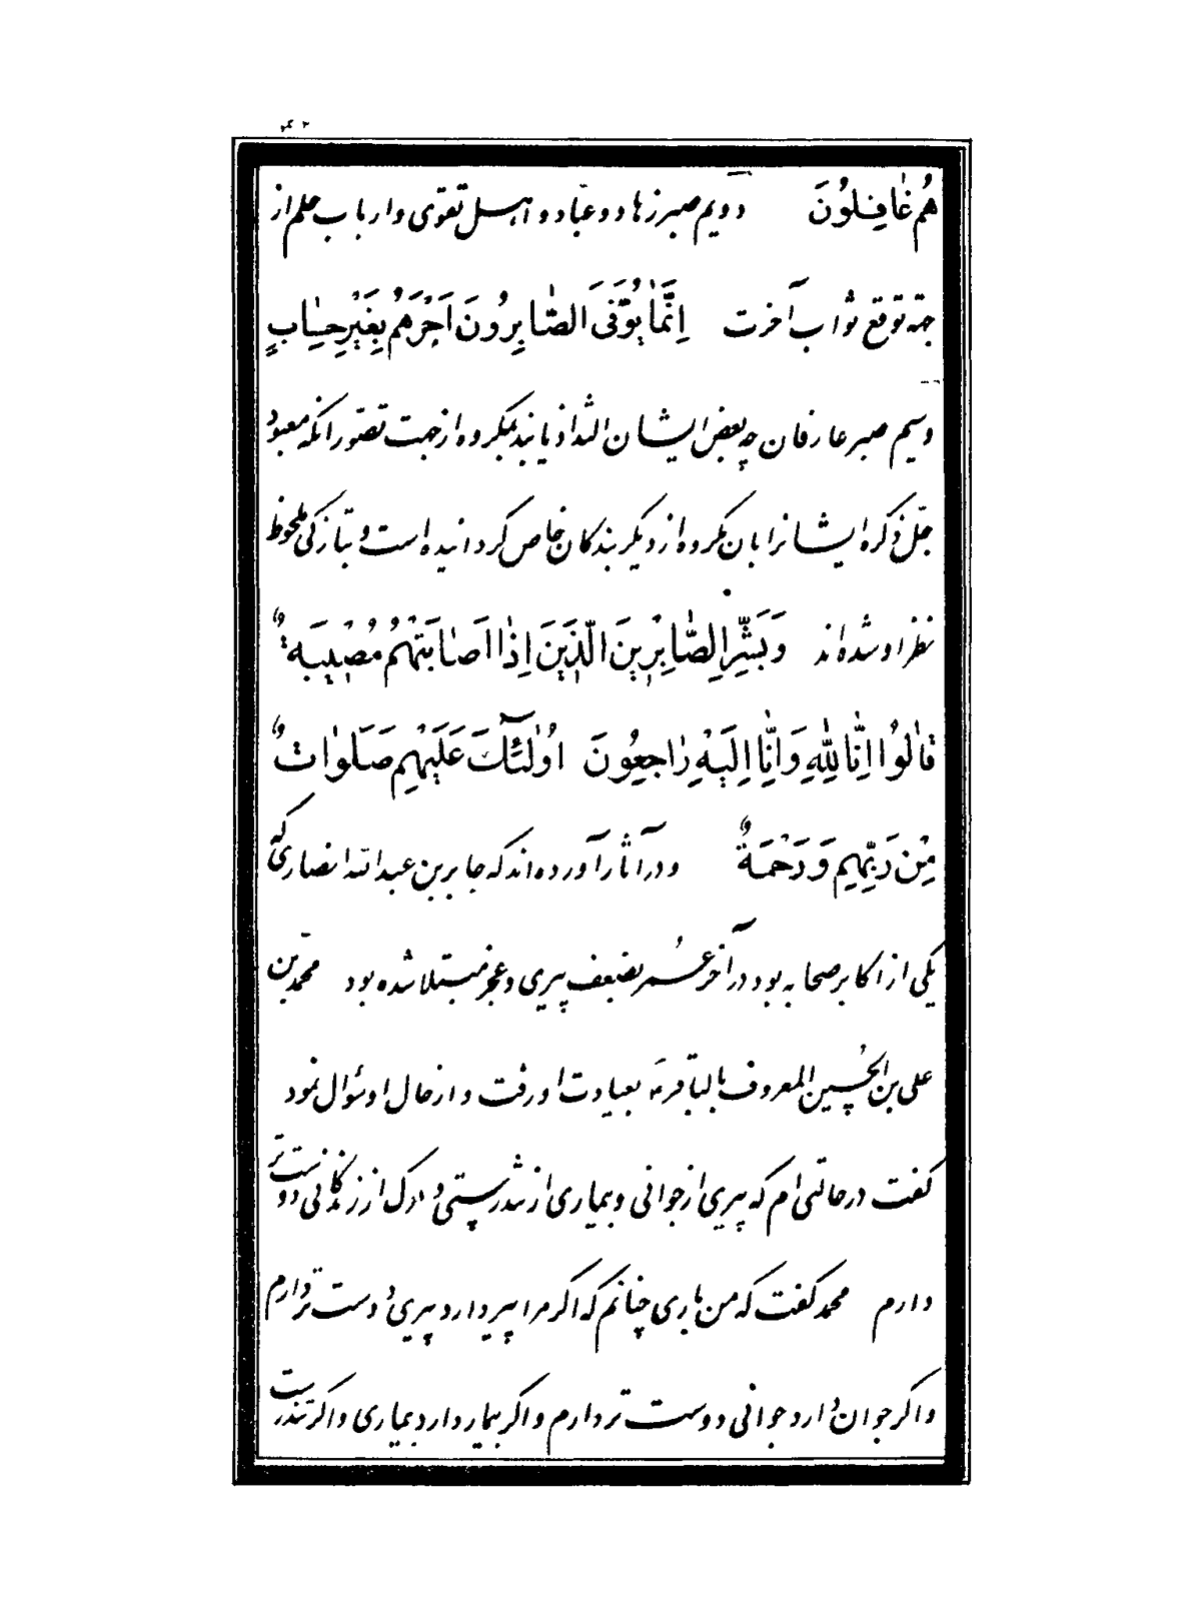 هُمْ غٰافِلُونَ دویم صبر زهاد و عبّاد و اهل تقوی و ارباب حلم از
جهة توقع ثواب آخرت اِنَّمٰا یُوَفَّیَ الصّٰابِرُونَ اَجْرَهُمْ بِغَیْرِ حِسٰابٍ
وسیم صبر عارفان چه بعض ایشان التذاذ یابند بمکروه از جهت تصوّر انکه معبود
جلّ ذکره ایشانرا بان مکروه از دیگر بندکان خاص کردانیده است و بتازکی ملحوظ
نظر او شده‌اند وَبَشِّرِ الصّٰابِرْینَ الَّذَینَ اِذٰا اَصٰابَتْهُمْ مُصْیِبَةٌ
قٰالُوُا اِنّٰا لِلّٰهِ وَاِنّٰا اِلَیْهِ رٰاجِعُونَ اوُلٰئِٓکَ عَلَیْهِمِ صَلَوٰاتٌ
مِنْ رَبِّهِمِ وَرَحْمَةٌ و در آثار آورده‌اند که جابر بن عبدالله انصاری که
یکی از اکابر صحابه بود در آخر عُمر بضعف پیری و عجز مبتلا شده بود محمّد بن
علی بن الحُسین المعروف بالباقر عَ بعیادت او رفت و از حال او سئوال نمود
کفت در حالتی ام که پیری از جوانی و بیماری از تندرستی و مرک از زندکانی دوست تر
دارم محمد کفت که من باری چنانم که اکر مرا پیر دارد پیری دوست تر دارم
و اکر جوان دارد جوانی دوست تر دارم و اکر بیمار دارد بیماری و اکر تندرست